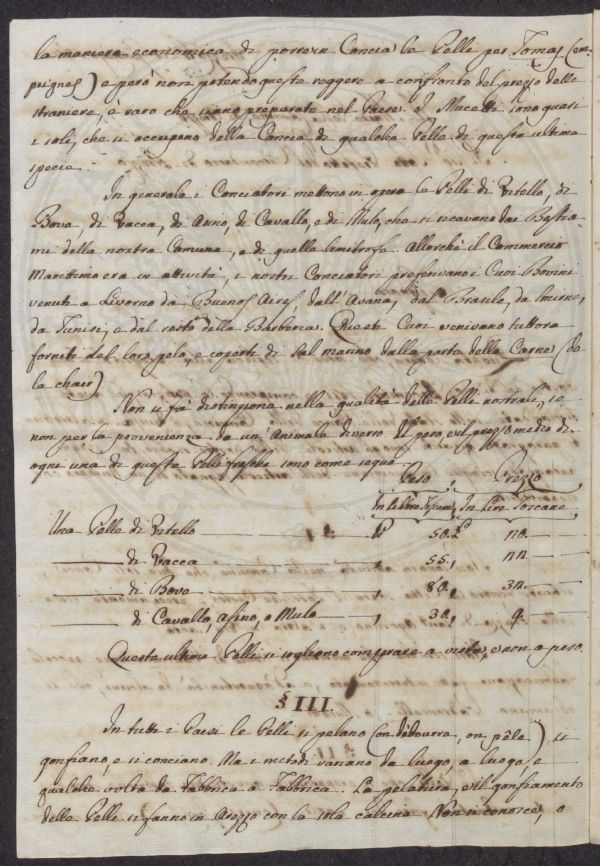 la maniera economica di porre in Concia le Pelli per Tomaj (em
peignes) e però non potendo queste reggere a confronto del prezzo delle
straniere, è raro che siano preparate nel Paese. I Mucetti sono quasi
i soli, che si occupino della Concia di qualche Pelle di questa ultima
specie.
In generale i Conciatori mettono in opera le Pelli di Vitello, di
Bove, di Vacca, di Asino, di Cavallo, e di Mulo, che si ricavano dai Bestia
mi della nostra Comune, e di quelle limitrofe. Allorchè il Commercio
Marittimo era in attività, i nostri Conciatori preferivano i Cuoi Bovini
venuti a Livorno da Buenos Aires, dall'Avana, dal Brasile, da Smirne,
da Tunisi, e dal resto della Barberia. Questi Cuoi venivano tuttora
forniti del loro pelo, e coperti di Sal marino dalla parte della Carne (de
la chair)
Non si fà distinzione nella qualità delle Pelli nostrali, se
non per la provenienza da un'Animale diverso. Il peso, e il prezzo medio di
ogni una di queste Pelli fresche sono come segue.
Peso, Prezzo
In Libbre Toscane, In Lire Toscane,
Una Pelle di Vitello 50.
di Vacca 55,
di Bove 80,
di Cavallo, asino, o Mulo 30, 9.
Queste ultime Pelli si sogliono comprare a vista, e non a peso.
§ III.
In tutti i Paesi le Pelli si pelano (on débourre, on pèle) si
gonfiano, e si conciano. Ma i metodi variano da luogo, a luogo e
qualche volta da Fabbrica a Fabbrica. La pelatura, e il gonfiamento
delle Pelli si fanno in Arezzo con la sola calcina. Non si conosce, o